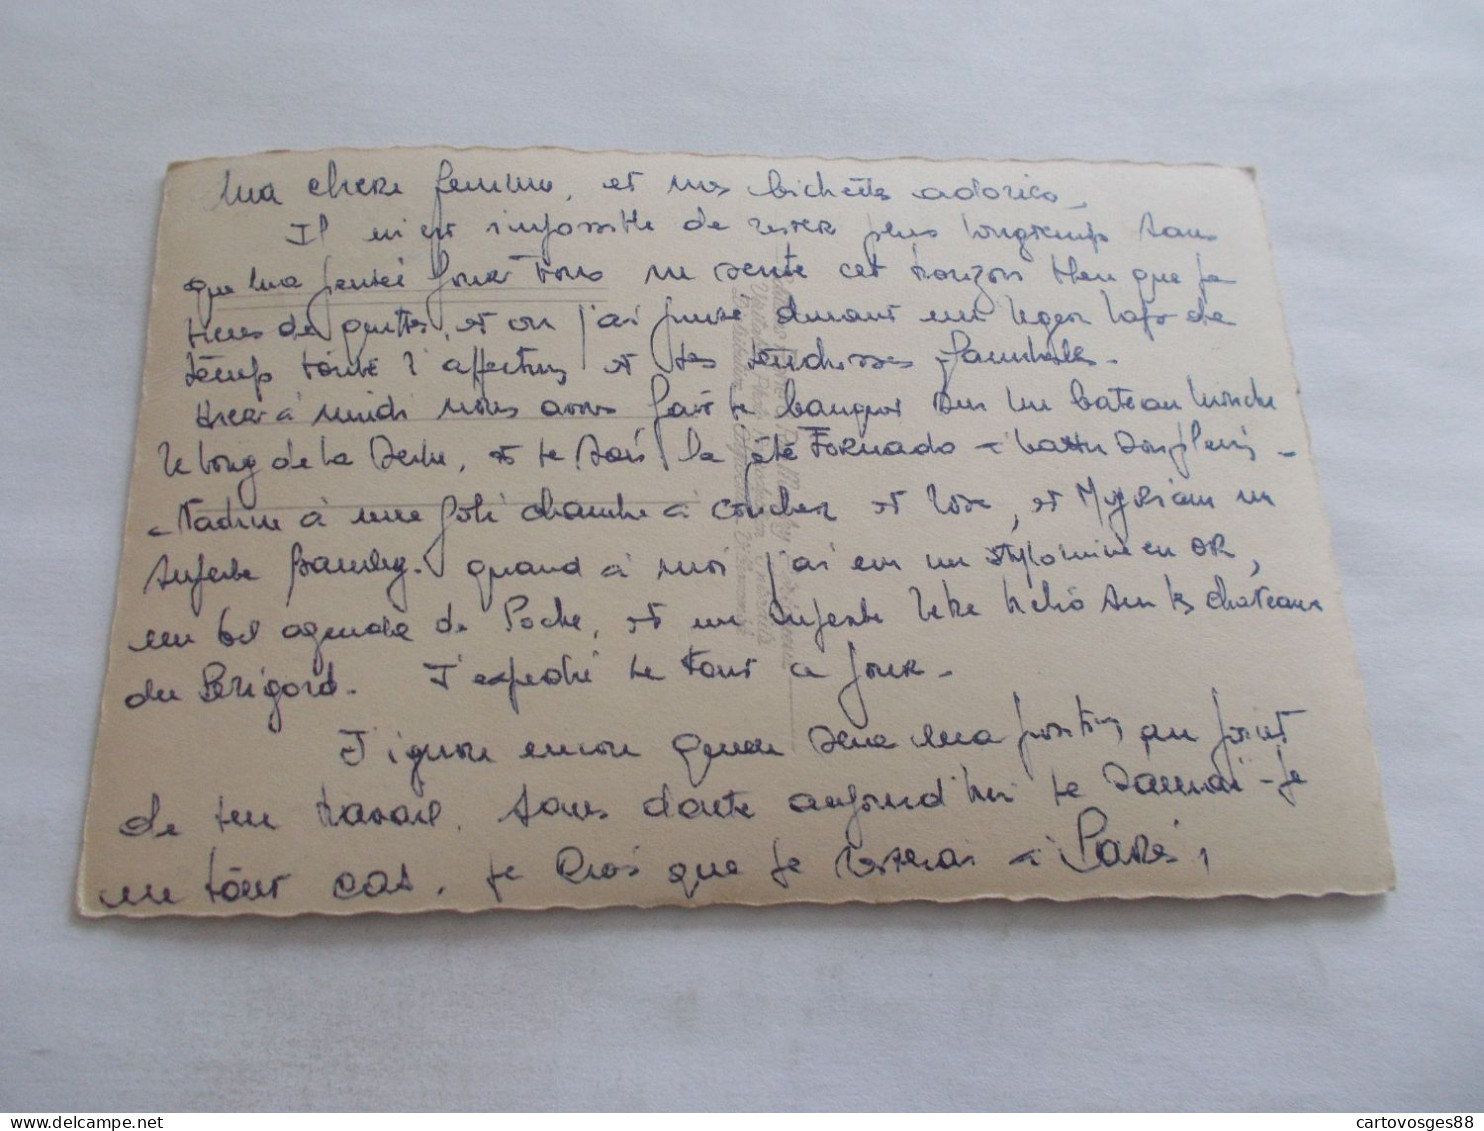 Ma chere femme, et mes bichettes adorées.
Il m'est impossible de rester plus longtemps sans
que ma pensée pour vous ne sente cet horizon bleu que je
viens de quitter, et ou j'ai puisé durant un leger laps de
temps toute l'affection et les tendresses familiales.
Hier à midi nous avons fait le banquet sur un bateau mouche
le long de la Seine, et le soir la fête FORNADO à battu son plein.
Nadine à une joli chambre à coucher et rose, et Myriam un
superbe . quand à moi j'ai eu un stylomine en OR,
un bel agenda de Poche, et un superbe livre sur les chateaux
du Périgord. J'expedie le tout a jour.
J'ignore encore quelle sera ma position au point
de vue travail. Sans doute aujourd'hui le saurai-je
en tout cas, je crois que je resterai à Paris,
cartovosges88